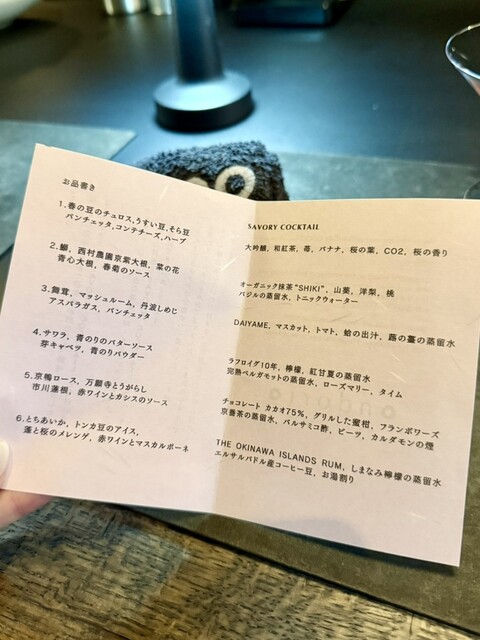 お品書き
1.春の豆のチュロス、うすい豆、そら豆
パンチェッタ、コンテチーズ、ハーブ
2.鰤，西村農園京紫大根，菜の花
青心大根，春菊のソース
3.舞茸，マッシュルーム，丹波しめじ
アスパラガス，パンチェッタ
4.サワラ，青のりのバターソース
芽キャベツ，青のりパウダー
5.京鴨ロース，万願寺とうがらし
市川蓮根，赤ワインとカシスのソース
6.とちあいか，トンカ豆のアイス，
蓬と桜のメレンゲ，赤ワインとマスカルポーネ
SAVORY COCKTAIL
大吟醸，和紅茶，苺，バナナ，桜の葉，CO2，桜の香り
オーガニック抹茶"SHIKI"，山葵，洋梨，桃
バジルの蒸留水，トニックウォーター
DAIYAME，マスカット，トマト，蛤の出汁，蕗の薹の蒸留水
ラフロイグ10年，檸檬，紅甘夏の蒸留水
完熟ベルガモットの蒸留水，ローズマリー，タイム
チョコレート カカオ75%，グリルした蜜柑，フランボワーズ
京番茶の蒸留水，バルサミコ酢，ビーツ，カルダモンの煙
THE OKINAWA ISLANDS RUM，しまなみ檸檬の蒸留水
エルサルバドル産コーヒー豆，お湯割り